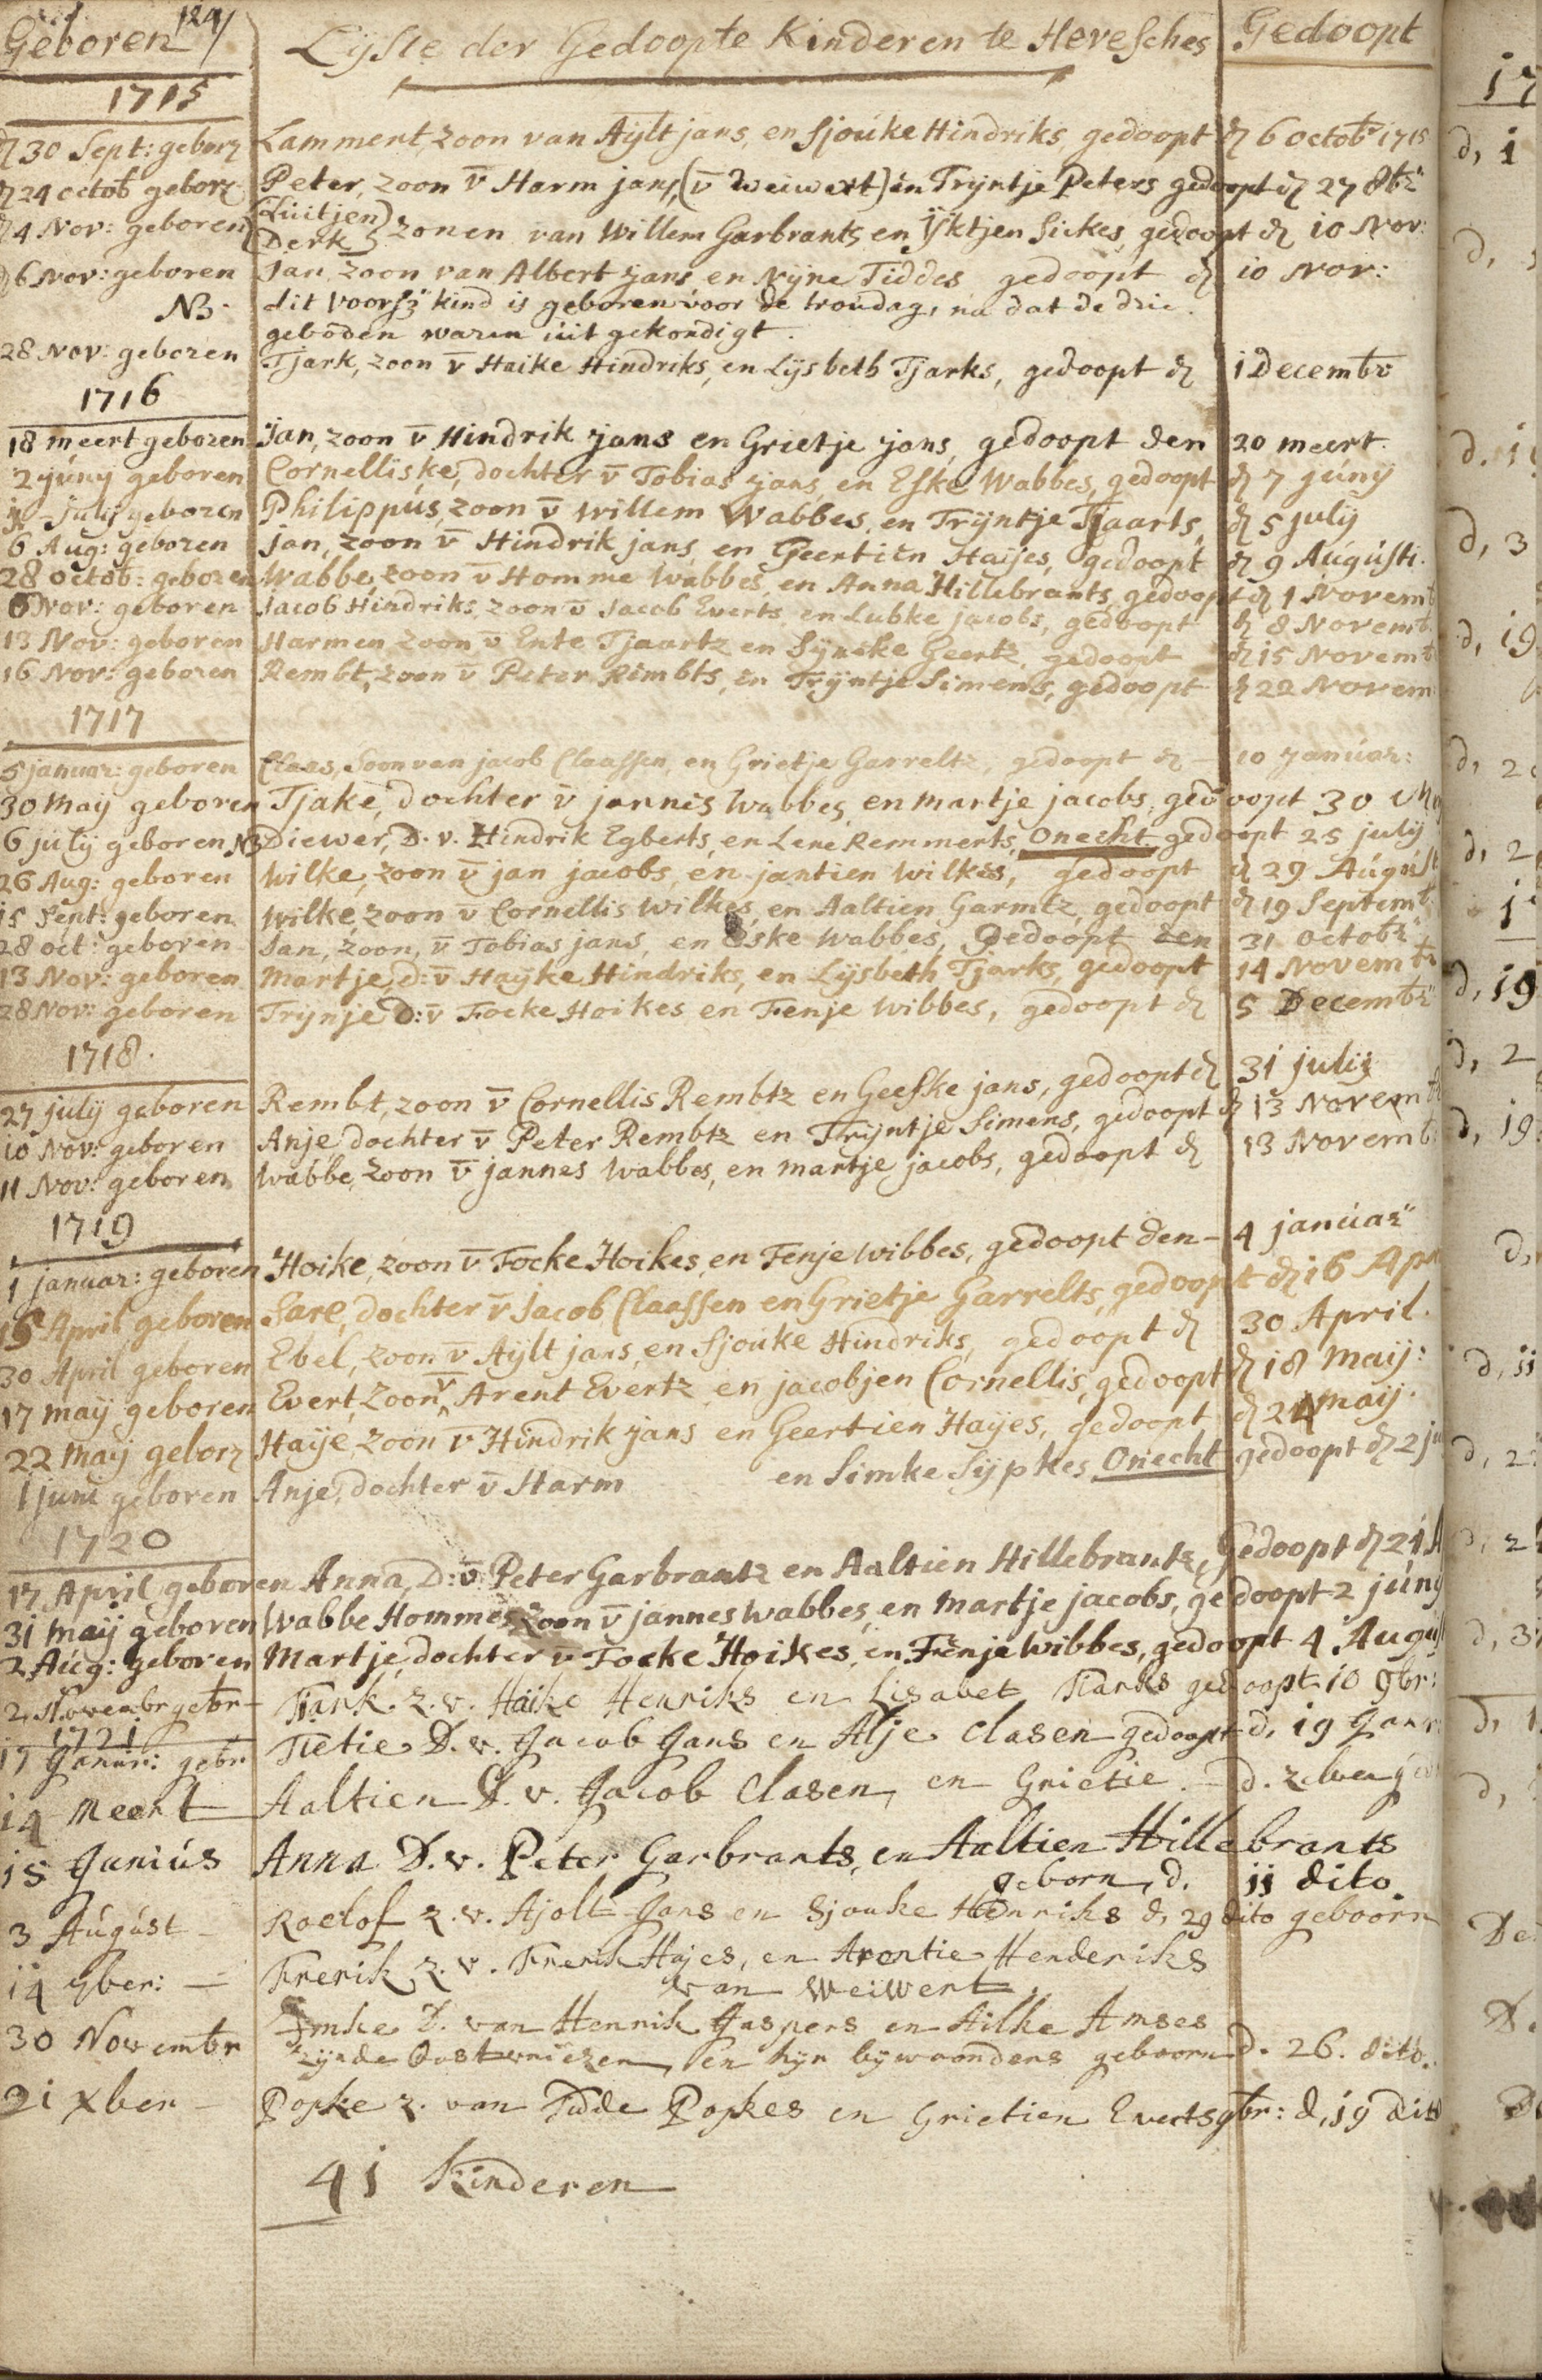 124/
Geboren Lyste der Gedoopte Kinderen te Hevesches Gedoopt
1715
dn 30 Sept: geborn Lammert, zoon van Aijlt jans, en Sjouke Hindriks, gedoopt dn 6 octobr 1715
dn 24 octob geborn Peter, zoon v̄ Harm jans, (v̄ weiwert) en Trijntje Peters gedoopt dn 27 8br
dn 4 Nov: geboren Luitjen
Derk } zonen van Willem Garbrants en Ijktjen Sickes, gedoopt dn 10 Nov:
dn 6 Nov: geboren Jan zoon van Albert jans en Nijne Tiddes gedoopt dn 10 Nov:
NB. dit voorsz kind is geboren voor de troudag, na dat de drie
geboden waren uit gekondigt.
28 Nov: geboren Tjark, zoon v̄ Haike Hindriks, en Lijsbeth Tjarks, gedoopt dn 1 Decembr
1716
18 meert geboren Jan, zoon v̄ Hindrik jans en Grietje jans, gedoopt den 20 meert.
2 juny geboren Cornelliske, dochter v̄ Tobias jans, en Eske Wabbes, gedoopt dn 7 juny
july geboren Philippus, zoon v̄ willem Wabbes, en Trijntje Tjaarts, dn 5 july
6 Aug: geboren Jan, zoon v̄ Hindrik jans, en Geertien Haijes, gedoopt dn 9 Augusti.
28 octob: geboren Wabbe, zoon v̄ Homme Wabbes, en Anna Hillebrants, gedoopt dn 1 Novemb
6 Nov: geboren Jacob Hindriks, zoon v̄ Jacob Everts, en Lubke jacobs, gedoopt dn 8 Novemb.
13 Nov: geboren Harmen, zoon v̄ Ente Tjaartz en Sijncke Geertz, gedoopt dn 15 Novemb
16 Nov: geboren Rembt, zoon v̄ Peter Rimbts, en Trijntje Simens, gedoopt dn 22 Novem
1717
5 januar: geboren Claas, Soon van jacob Claassen, en Grietje Garreltz, gedoopt dn 10 januar:
30 Maij geboren Tjake, dochter v̄ jannes wabbes, en martje jacobs, gedoopt 30
6 july geboren NB Diewer, D. v. Hindrik Egberts, en Lene Remmerts, Onecht gedoopt 25 july
26 Aug: geboren Wilke, zoon v̄ jan jacobs, en jantien Wilkes, gedoopt dn 29 August
15 Sept: geboren Wilke, zoon v̄ Cornellis Wilkes, en Aaltien Garmtz, gedoopt dn 19 Septemb
28 oct: geboren Jan, zoon, v̄ Tobias jans, en Eske Wabbes, Gedoopt den 31 octobr
13 Nov: geboren Martje, d: v̄ Haijke Hindriks, en Lijsbeth Tjarks, gedoopt 14 Novembr
28 Nov: geboren Trijnje D: v̄ Focke Hoikes en Fenje Wibbes, gedoopt dn 5 Decembr
1718.
27 july geboren Rembt, zoon v̄ Cornellis Rembtz en Geeske jans, gedoopt dn 31 july
10 Nov: geboren Anje, dochter v̄ Peter Rembtz en Trijntje Simens, gedoopt dn 13 Novembr
11 Nov: geboren Wabbe, zoon v̄ jannes wabbes, en martje jacobs, gedoopt dn 13 Novemb
1719
1 januar: geboren Hoike, zoon v̄ Focke Hoikes, en Fenje wibbes, gedoopt den 4 januar
April geboren Sare, dochter v̄ Jacob Claassen en Grietje Garrelts, gedoopt dn 16 Apr
30 April geboren Ebel, zoon v̄ Aijlt jans, en Sjouke Hindriks, gedoopt dn 30 April.
17 maij geboren Evert, zoon v̄ Arent Evertz en jacobjen Cornellis, gedoopt dn 18 Maij:
22 maij geborn Haije, zoon v̄ Hindrik jans en Geertien Haijes, gedoopt dn 24 maij.
1 juni geboren Anje, dochter v̄ Harm en Simke Sijpkes Onecht gedoopt dn 2 ju
1720
17 April geboren Anna, D: v̄ Peter Garbrantz en Aaltien Hillebrantz, Gedoopt dn 21 A
31 maij geboren Wabbe Hommes zoon v̄ jannes wabbes, en martje jacobs, gedoopt 2 juny
2 Aug: geboren Martje, dochter v̄ Focke Hoikes, en Fenje Wibbes, gedoopt 4 August
2 Novembr gebr Tjark. z. v. Haike Henriks en Lisabet Tiarks gedoopt 10 9br:
1721
17 Janur: gebr Tietie D. v. Jacob Jans en Alje Clasen gedoopt d. 19 Janr:
14 Meert Aaltien D. v. Jacob Clasen, en Grietie. d. zelven
15 Junius Anna D. v. Peter Garbrants, en Aaltien Hillebrants
geborn, d. 11 dito.
3 August Roelof z. v. Ajolt Jans en Sjouke Henriks d. 29 dito geboorn
14 9ber: Frerik z. v. Frerik Hajes, en Arentie Henderiks
van Weiwert.
30 Novembr Imke D. van Hennik Jaspers en Ailke Amses
zijnde Oostvriezen, en hijr bijwoonders geboorn d. 26. dito.
21 xber Popke z. van Fidde Popkes en Grietien Everts gbr: d, 19 dito
41 Kinderen